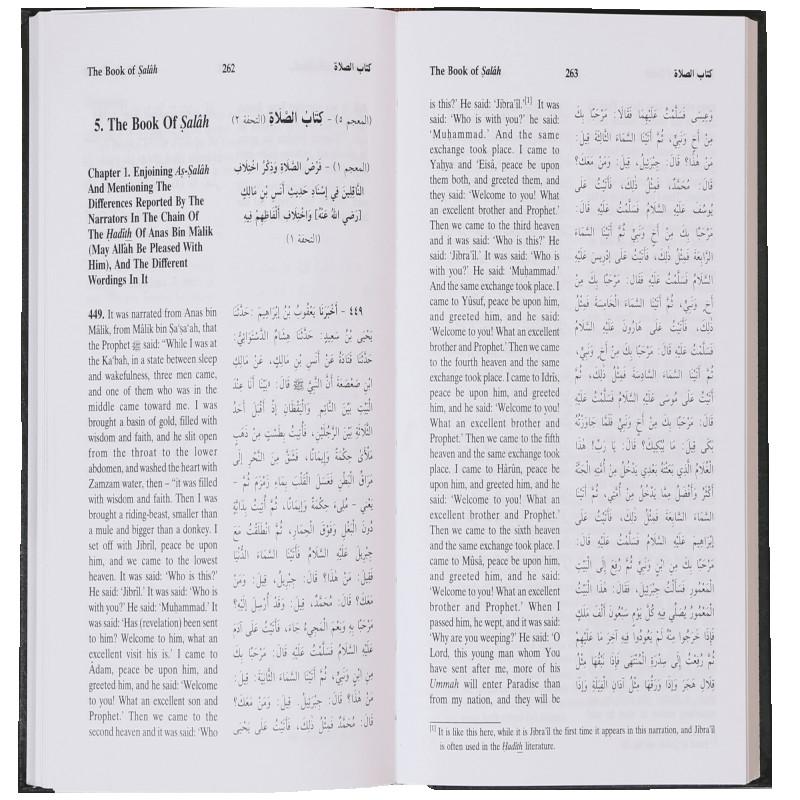 The Book of Ṣalâh 262 كتاب الصلاة
5. The Book Of Ṣalâh
(المعجم ٥) - كِتَابُ الصَّلَاةِ (التحفة ٢)
Chapter 1. Enjoining Aṣ-Ṣalâh
And Mentioning The
Differences Reported By The
Narrators In The Chain Of
The Hadîth Of Anas Bin Mâlik
(May Allâh Be Pleased With
Him), And The Different
Wordings In It
(المعجم ١) - فَرْضُ الصَّلَاةِ وَذِكْرُ اخْتِلَافِ
النَّاقِلِينَ فِي إِسْنَادِ حَدِيثِ أَنَسِ بْنِ مَالِكٍ
[رَضِيَ اللهُ عَنْهُ] وَاخْتِلَافِ أَلْفَاظِهِمْ فِيهِ
(التحفة ١)
449. It was narrated from Anas bin
Mâlik, from Mâlik bin Ṣa'ṣa'ah, that
the Prophet ﷺ said: "While I was at
the Ka'bah, in a state between sleep
and wakefulness, three men came,
and one of them who was in the
middle came toward me. I was
brought a basin of gold, filled with
wisdom and faith, and he slit open
from the throat to the lower
abdomen, and washed the heart with
Zamzam water, then – "it was filled
with wisdom and faith. Then I was
brought a riding-beast, smaller than
a mule and bigger than a donkey. I
set off with Jibrîl, peace be upon
him, and we came to the lowest
heaven. It was said: 'Who is this?'
He said: 'Jibrîl.' It was said: 'Who is
with you?' He said: 'Muḥammad.' It
was said: 'Has (revelation) been sent
to him? Welcome to him, what an
excellent visit his is.' I came to
Âdam, peace be upon him, and
greeted him, and he said: 'Welcome
to you! What an excellent son and
Prophet.' Then we came to the
second heaven and it was said: 'Who
٤٤٩ - أَخْبَرَنَا يَعْقُوبُ بْنُ إِبْرَاهِيمَ: حَدَّثَنَا
يَحْيَى بْنُ سَعِيدٍ: حَدَّثَنَا هِشَامٌ الدَّسْتَوَائِيُّ:
حَدَّثَنَا قَتَادَةُ عَنْ أَنَسِ بْنِ مَالِكٍ، عَنْ مَالِكِ
ابْنِ صَعْصَعَةَ أَنَّ النَّبِيَّ ﷺ قَالَ: «بَيْنَا أَنَا عِنْدَ
الْبَيْتِ بَيْنَ النَّائِمِ وَالْيَقْظَانِ إِذْ أَقْبَلَ أَحَدُ
الثَّلَاثَةِ بَيْنَ الرَّجُلَيْنِ، فَأُتِيتُ بِطَسْتٍ مِنْ ذَهَبٍ
مَلْأَى حِكْمَةً وَإِيمَانًا، فَشَقَّ مِنَ النَّحْرِ إِلَى
مَرَاقِّ الْبَطْنِ فَغَسَلَ الْقَلْبَ بِمَاءِ زَمْزَمَ ثُمَّ -
يَعْنِي - مُلِىءَ حِكْمَةً وَإِيمَانًا، ثُمَّ أُتِيتُ بِدَابَّةٍ
دُونَ الْبَغْلِ وَفَوْقَ الْحِمَارِ، ثُمَّ انْطَلَقْتُ مَعَ
جِبْرِيلَ عَلَيْهِ السَّلَامُ فَأَتَيْنَا السَّمَاءَ الدُّنْيَا
فَقِيلَ: مَنْ هَذَا؟ قَالَ: جِبْرِيلُ، قِيلَ: وَمَنْ
مَعَكَ؟ قَالَ: مُحَمَّدٌ، قِيلَ: وَقَدْ أُرْسِلَ إِلَيْهِ؟
مَرْحَبًا بِهِ وَنِعْمَ الْمَجِيءُ جَاءَ، فَأَتَيْتُ عَلَى آدَمَ
عَلَيْهِ السَّلَامُ فَسَلَّمْتُ عَلَيْهِ قَالَ: مَرْحَبًا بِكَ
مِنِ ابْنٍ وَنَبِيٍّ، ثُمَّ أَتَيْنَا السَّمَاءَ الثَّانِيَةَ: قِيلَ:
مَنْ هَذَا؟ قَالَ: جِبْرَئِيلُ. قِيلَ: وَمَنْ مَعَكَ؟
قَالَ: مُحَمَّدٌ فَمِثْلُ ذَلِكَ، فَأَتَيْتُ عَلَى يَحْيَى
The Book of Ṣalâh 263 كتاب الصلاة
is this?' He said: 'Jibra'îl.'[1] It was
said: 'Who is with you?' he said:
'Muḥammad.' And the same
exchange took place. I came to
Yaḥya and 'Eisâ, peace be upon
them both, and greeted them, and
they said: 'Welcome to you! What
an excellent brother and Prophet.'
Then we came to the third heaven
and it was said: 'Who is this?' He
said: 'Jibra'îl.' It was said: 'Who is
with you?' He said: 'Muḥammad.'
And the same exchange took place. I
came to Yûsuf, peace be upon him,
and greeted him, and he said:
'Welcome to you! What an excellent
brother and Prophet.' Then we came
to the fourth heaven and the same
exchange took place. I came to Idrîs,
peace be upon him, and greeted
him, and he said: 'Welcome to you!
What an excellent brother and
Prophet.' Then we came to the fifth
heaven and the same exchange took
place. I came to Hârûn, peace be
upon him, and greeted him, and he
said: 'Welcome to you! What an
excellent brother and Prophet.'
Then we came to the sixth heaven
and the same exchange took place. I
came to Mûsâ, peace be upon him,
and greeted him, and he said:
'Welcome to you! What an excellent
brother and Prophet.' When I
passed him, he wept, and it was said:
'Why are you weeping?' He said: 'O
Lord, this young man whom You
have sent after me, more of his
Ummah will enter Paradise than
from my nation, and they will be
وَعِيسَى فَسَلَّمْتُ عَلَيْهِمَا فَقَالَا: مَرْحَبًا بِكَ
مِنْ أَخٍ وَنَبِيٍّ، ثُمَّ أَتَيْنَا السَّمَاءَ الثَّالِثَةَ قِيلَ:
مَنْ هَذَا؟ قَالَ: جِبْرَئِيلُ، قِيلَ: وَمَنْ مَعَكَ؟
قَالَ: مُحَمَّدٌ، فَمِثْلُ ذَلِكَ، فَأَتَيْتُ عَلَى
يُوسُفَ عَلَيْهِ السَّلَامُ فَسَلَّمْتُ عَلَيْهِ قَالَ:
مَرْحَبًا بِكَ مِنْ أَخٍ وَنَبِيٍّ ثُمَّ أَتَيْنَا السَّمَاءَ
الرَّابِعَةَ فَمِثْلُ ذَلِكَ، فَأَتَيْتُ عَلَى إِدْرِيسَ عَلَيْهِ
السَّلَامُ فَسَلَّمْتُ عَلَيْهِ فَقَالَ: مَرْحَبًا بِكَ مِنْ
أَخٍ وَنَبِيٍّ، ثُمَّ أَتَيْنَا السَّمَاءَ الْخَامِسَةَ فَمِثْلُ
ذَلِكَ، فَأَتَيْتُ عَلَى هَارُونَ عَلَيْهِ السَّلَامُ
فَسَلَّمْتُ عَلَيْهِ قَالَ: مَرْحَبًا بِكَ مِنْ أَخٍ وَنَبِيٍّ،
ثُمَّ أَتَيْنَا السَّمَاءَ السَّادِسَةَ فَمِثْلُ ذَلِكَ، ثُمَّ
أَتَيْتُ عَلَى مُوسَى عَلَيْهِ السَّلَامُ فَسَلَّمْتُ عَلَيْهِ
قَالَ: مَرْحَبًا بِكَ مِنْ أَخٍ وَنَبِيٍّ فَلَمَّا جَاوَزْتُهُ
بَكَى قِيلَ: مَا يُبْكِيكَ؟ قَالَ: يَا رَبِّ! هَذَا
الْغُلَامُ الَّذِي بَعَثْتَهُ بَعْدِي يَدْخُلُ مِنْ أُمَّتِهِ الْجَنَّةَ
أَكْثَرُ وَأَفْضَلُ مِمَّا يَدْخُلُ مِنْ أُمَّتِي، ثُمَّ أَتَيْنَا
السَّمَاءَ السَّابِعَةَ فَمِثْلُ ذَلِكَ، فَأَتَيْتُ عَلَى
إِبْرَاهِيمَ عَلَيْهِ السَّلَامُ فَسَلَّمْتُ عَلَيْهِ قَالَ:
مَرْحَبًا بِكَ مِنِ ابْنٍ وَنَبِيٍّ ثُمَّ رُفِعَ لِيَ الْبَيْتُ
الْمَعْمُورُ فَسَأَلْتُ جِبْرَئِيلَ، فَقَالَ: هَذَا الْبَيْتُ
الْمَعْمُورُ يُصَلِّي فِيهِ كُلَّ يَوْمٍ سَبْعُونَ أَلْفَ مَلَكٍ
فَإِذَا خَرَجُوا مِنْهُ لَمْ يَعُودُوا فِيهِ آخِرَ مَا عَلَيْهِمْ
ثُمَّ رُفِعَتْ لِي سِدْرَةُ الْمُنْتَهَى فَإِذَا نَبِقُهَا مِثْلُ
قِلَالِ هَجَرٍ وَإِذَا وَرَقُهَا مِثْلُ آذَانِ الْفِيَلَةِ وَإِذَا
[1] It is like this here, while it is Jibra'îl the first time it appears in this narration, and Jibra'îl
is often used in the Hadîth literature.